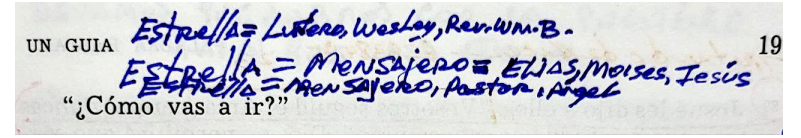 Estrella = Lutero, Wesley, Rev. Wm. B.
UN GUIA 19
Estrella = Mensajero = Elias, Moises, Jesús
Estrella = Mensajero, Pastor, Angel
“¿Cómo vas a ir?”